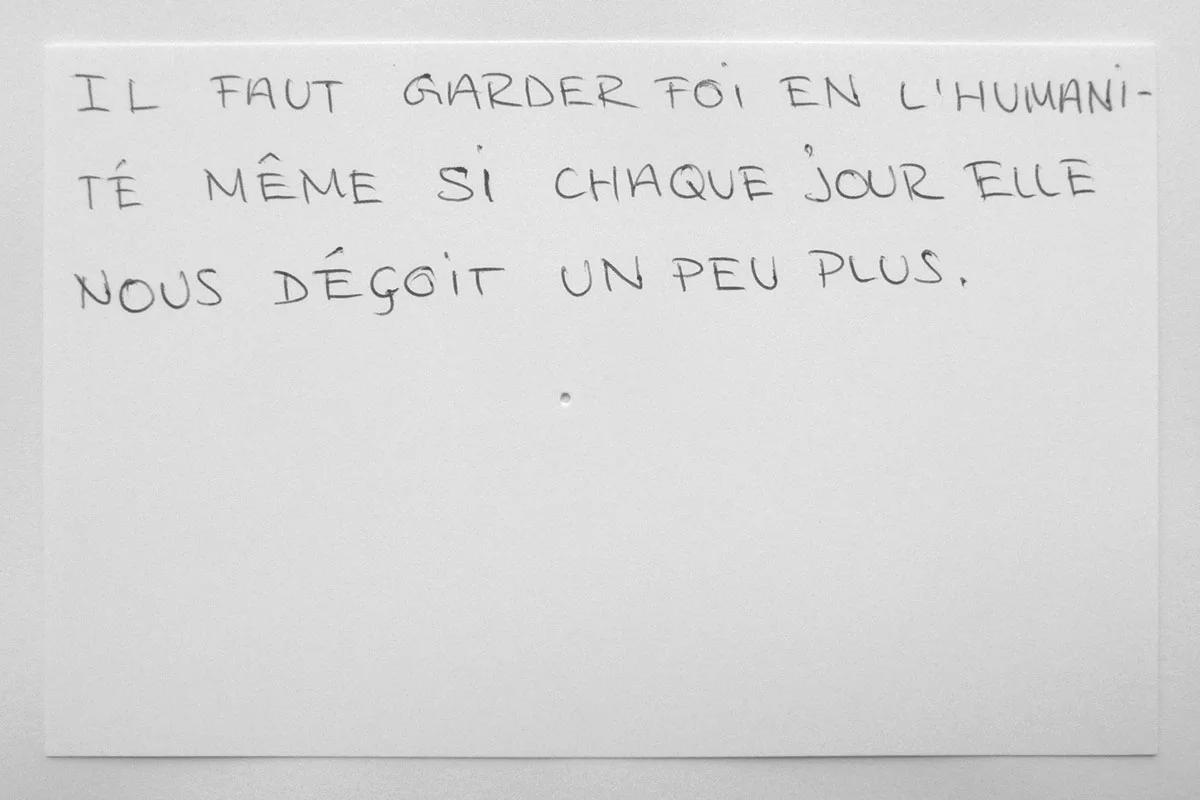 IL FAUT GARDER FOI EN L'HUMANI-
TÉ MÊME SI CHAQUE JOUR ELLE
NOUS DÉÇOIT UN PEU PLUS.